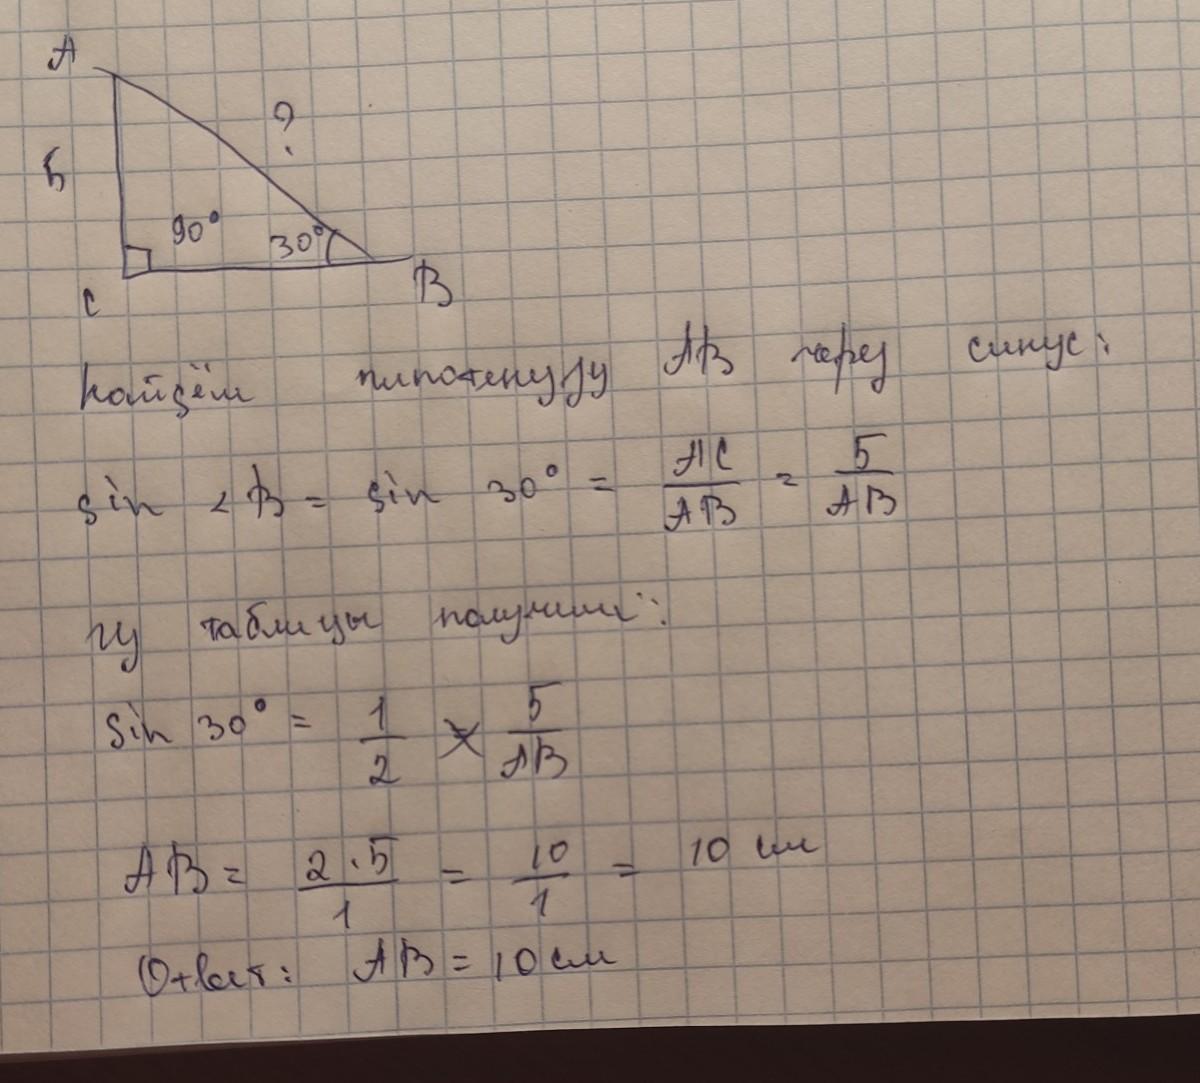 A
?
5
90°
30°
C
B
Найдём гипотенузу AB через синус:
sin ∠B = sin 30° = AC/AB = 5/AB
из таблицы получим:
sin 30° = 1/2 × 5/AB
AB = 2·5/1 = 10/1 = 10 см
Ответ: AB = 10 см